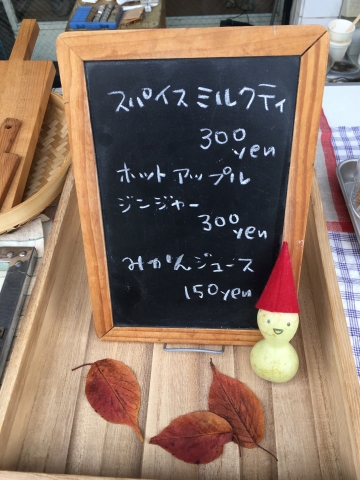 スパイスミルクティ
300
yen
ホットアップル
ジンジャー
300
yen
みかんジュース
150yen